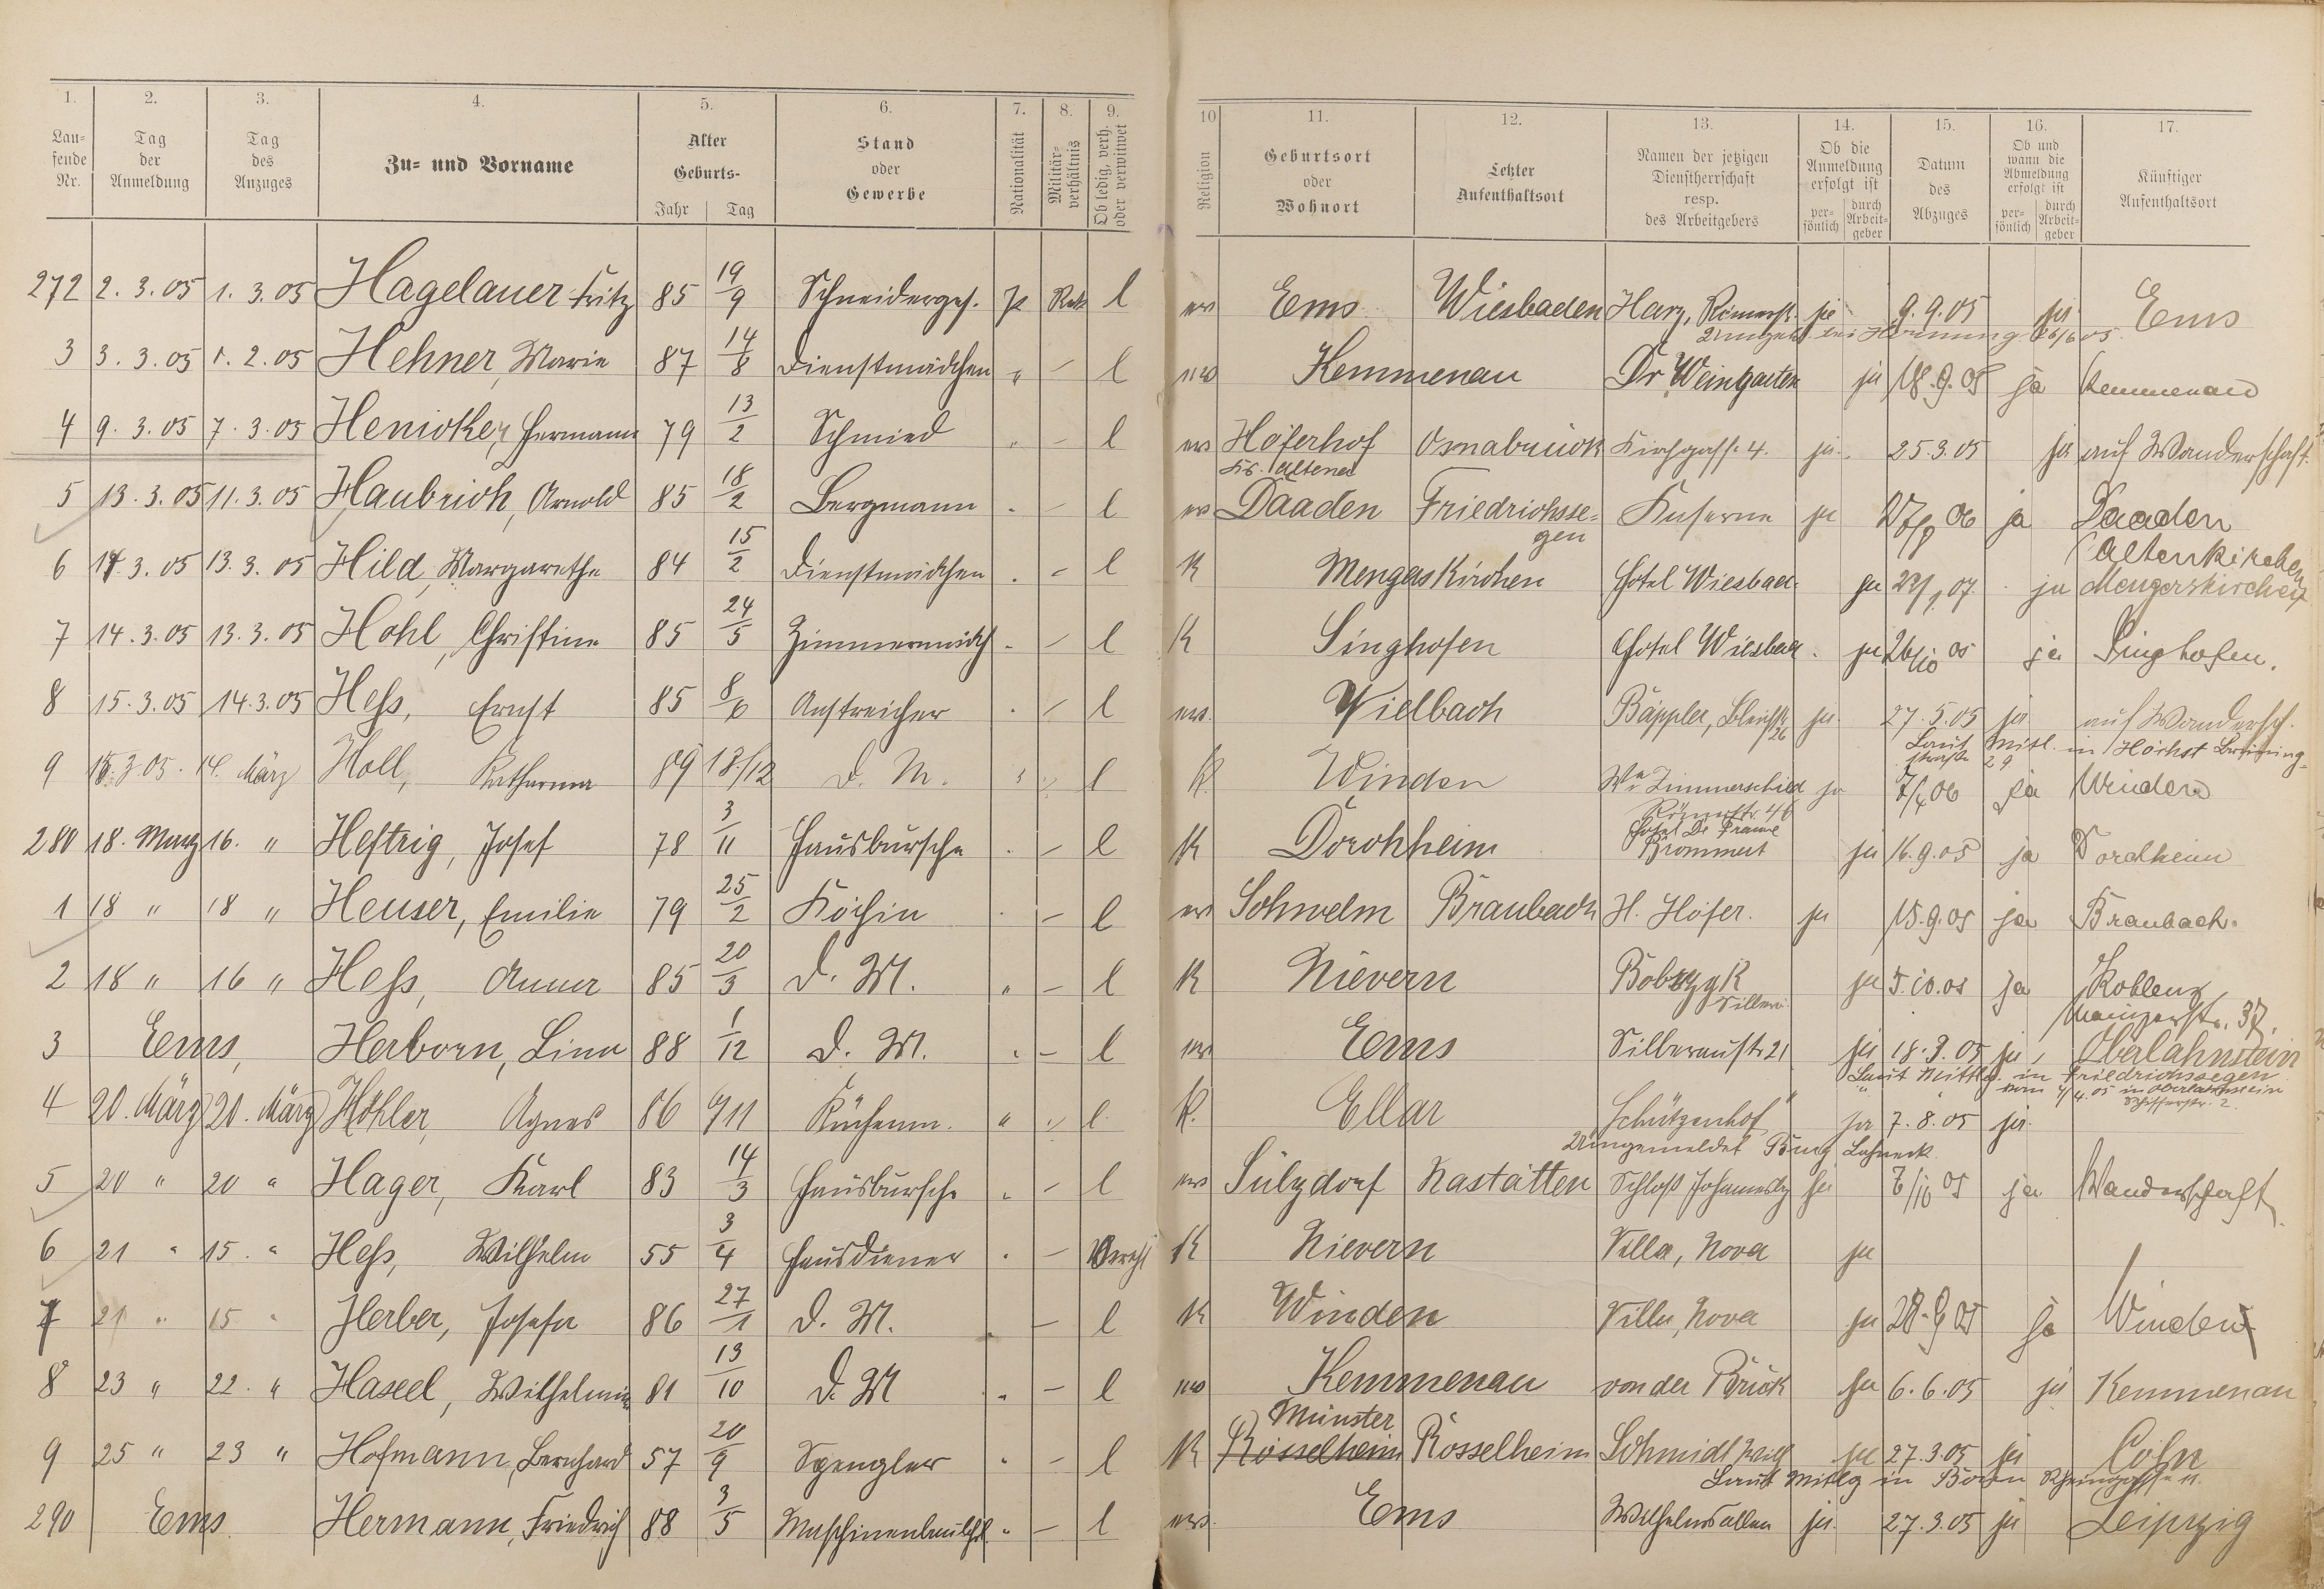 1. 2. 3. 4. 5. 6. 7. 8. 9. 10 11. 12. 13. 14. 15. 16. 17.
Laufende Nr. Tag der Anmeldung Tag des Anzuges Zu- und Vorname Alter Geburts- Jahr Tag Stand oder Gewerbe Nationalität Militärverhältnis Ob ledig, verh. oder verwitwet Religion Geburtsort oder Wohnort Letzter Aufenthaltsort Namen der jetzigen Dienstherrschaft resp. des Arbeitgebers Ob die Anmeldung erfolgt ist persönlich durch Arbeitgeber Datum des Abzuges Ob und wann die Abmeldung erfolgt ist persönlich durch Arbeitgeber Künftiger Aufenthaltsort
272 2. 3. 05 1. 3. 05 Hagelauer Fritz 85 19/9 Schneiderges. l ev Ems Wiesbaden ja 9. 9. 05 ja Ems
3 3. 3. 05 1. 2. 05 Hehner, Marie 87 14/8 Dienstmädchen " – l ev Kemmenau Dr Weingarten ja 18. 9. 05 ja Kemmenau
4 9. 3. 05 7. 3. 05 Henicker, Hermann 79 13/2 Schmied " – l ev Höferhof Osnabrück Kirchgasse 4. ja 25. 3. 05 ja auf Wanderschaft.
Kr. Altena
5 13. 3. 05 11. 3. 05 Haubrich, Arnold 85 18/2 Bergmann " – l ev Daaden Friedrichssegen Kaserne ja 27/8 06 ja Daaden
(Altenkirchen
6 14. 3. 05 13. 3. 05 Hild, Margarethe 84 15/2 Dienstmädchen " – l K Mengerskirchen Hotel Wiesbad. ja 07. ja Mengerskirchen
7 14. 3. 05 13. 3. 05 Hohl, Christine 85 24/5 Zimmermädch " – l K Singhofen Hotel Wiesbad. ja 26/10 05 ja Singhofen.
8 15. 3. 05 14. 3. 05 Heß, Ernst 85 8/6 Anstreicher " – l ev. Vielbach Bäppler, Bleichstr. 26 ja 27. 5. 05 ja auf Wandersch.
Laut Mitl. in Höchst
9 15. 3. 05. 14. März Holl, Katharina 89 18/12 D. M. " " l K. Winden We Zimmerschied ja 7/4 06 ja Winden
Römerstr. 46
280 18. März 16. " Heftrig, Josef 78 3/11 Hausbursche " – l K Dorchheim Brommert ja 16. 9. 05 ja Dorchheim
1 18 " 18 " Heuser, Emilie 79 25/2 Köchin " – l ev Schwelm Braubach H. Höfer. ja 15. 9. 05 ja Braubach.
2 18 " 16 " Heß, Anna 85 20/3 D. M. " – l K Nievern Bobzyk ja 5. 10. 05 ja Koblenz
Mainzerstr. 37.
3 Ems, Herborn, Lina 88 1/12 D. M. " – l ev Ems Silberaustr 21 ja 18. 3. 05 ja Oberlahnstein
Laut Mittlg. in Friedrichssegen
" vom 4/4. 05 in Oberlahnstein
Schifferstr. 2.
4 20. März 20. März Höhler, Agnes 86 9/11 Küchenm. " " l. K. Ellar Schützenhof ja 7. 8. 05 ja.
Umgemeldet Burg Lahneck.
5 20 " 20 " Hager, Karl 83 14/3 Hausbursche " – l ev Sülzdorf Nastätten Schloß Johannisbg ja 7/10 05 ja Wanderschaft
6 21 " 15. " Heß, Wilhelm 55 3/4 Hausdiener " – K Nievern Villa, Nova ja
7 21 " 15 " Herber, Josefa 86 27/1 D. M. " – l K Winden Villa, Nova ja 28. 9 05 ja Winden
8 23 " 22. " Haseel, Wilhelmine 81 13/10 D. M " – l ev Kemmenau von der Brück ja 6. 6. 05 ja Kemmenau
Münster
9 25 " 23 " Hofmann, Bernhard 57 20/9 Spengler " – l K Rösselheim Rösselheim Schmidt ja 27. 3. 05 ja Cöln
Laut Mittlg in Bonn Rheingasse 11.
290 Ems. Hermann, Friedrich 88 3/5 " – l ev. Ems Wilhelmsallee ja. 27. 3. 05 ja Leipzig